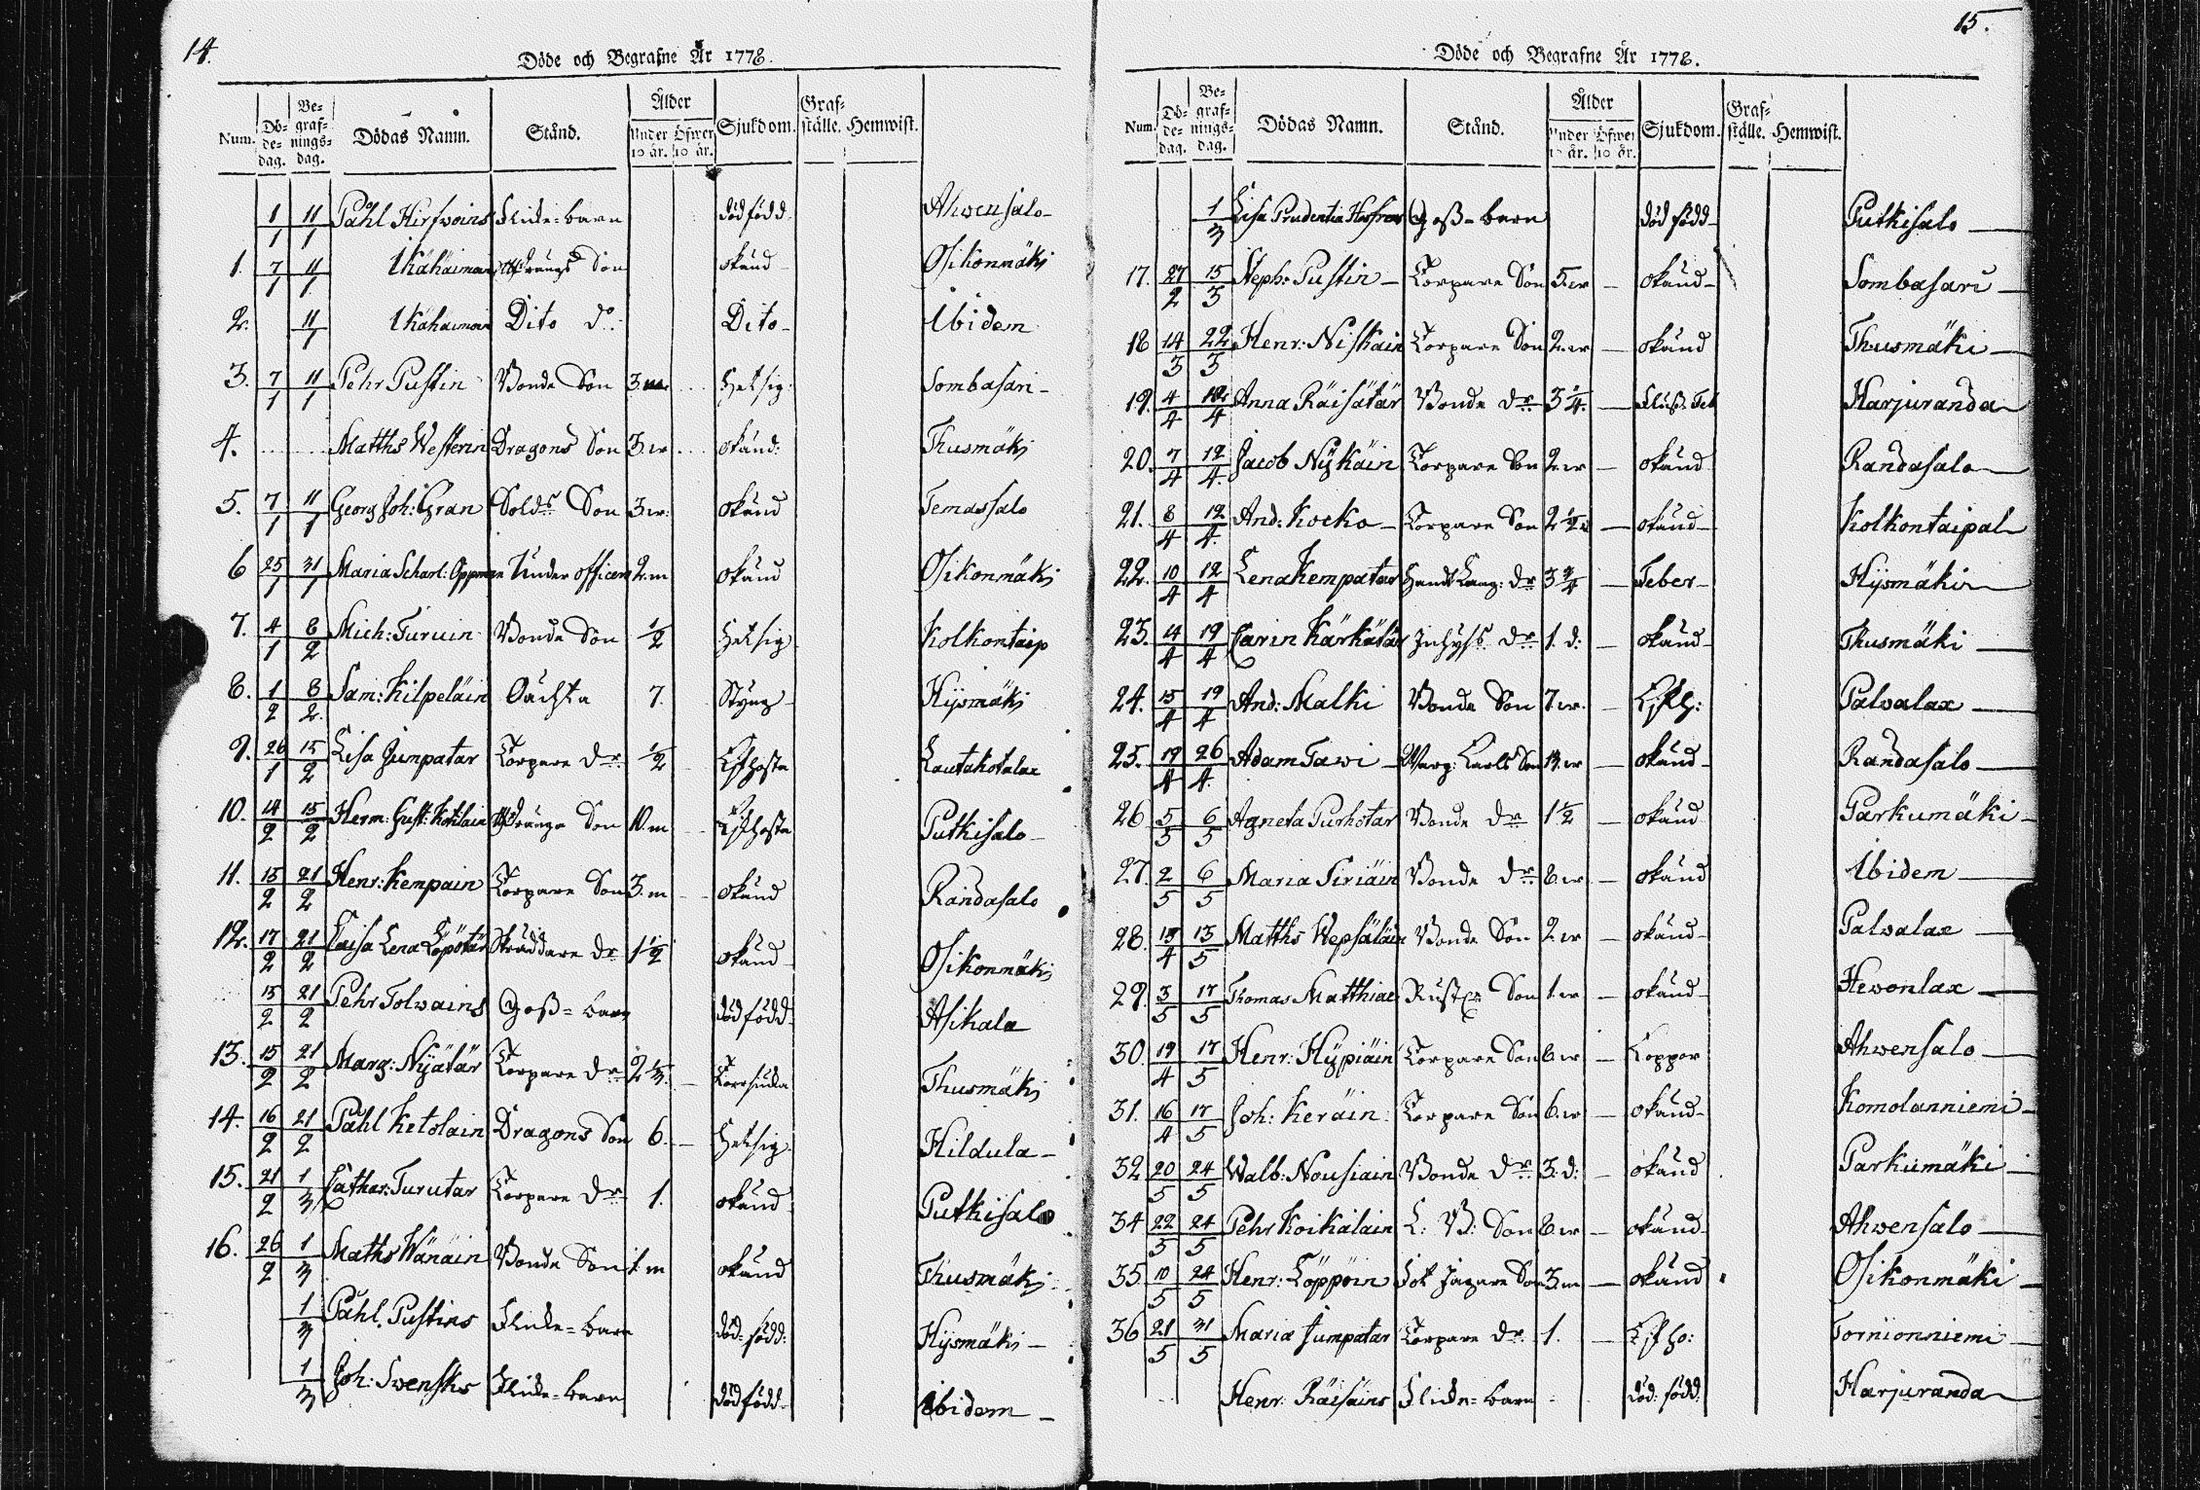 14.
Döde och Begrafne År 1778.
Num. Döde-dag. Begrafnings-dag. Dödas Namn. Stånd. Ålder Under 10 år. Öfwer 10 år. Sjukdom. Grafställe. Hemwist.
1/1 11/1 Påhl Hirfwoins Flicke-barn död född. Ahwensalo
1. 7/1 11/1 Kähäiman Drängs Son okänd Osikonmäki
2. 11/1 Kähäiman Dito do: Dito Ibidem
3. 7/1 11/1 Pehr Pustin Bonde Son 3 Hetsig Sombasari
4. Matths Westerin Dragons Son 3.w okänd: Thusmäki
5. 7/1 11/1 Georg Joh: Gran Solds Son 3.w: okänd Temassalo
6 25/1 31/1 Maria Scharl: Under officers 2.m okänd Osikonmäki
7. 4/1 8/2 Mich: Turuin Bonde Son 1/2 Hetsig Kolkontaip
8. 1/2 8/2. Sam: Kilpeläin 7. Styng Hysmäki
9. 26/1 15/2 Lisa Jumpatar Torpare dr 1/2 Lefhosta Lautakotalax
10. 14/2 15/2 Herm: Gust: Drängs Son 10.m Lefhosta Putkisalo
11. 15/2 21/2 Henr: Kempain Torpare Son 3.m okänd Randasalo
12. 17/2 21/2 Caisa Lena Löpötär Skräddare dr 1 1/2 okänd Osikonmäki
15/2 21/2 Pehr Tolwains Goss-barn död född Asikala
13. 15/2 21/2 Marg: Nyätär Torpare dr 2 1/3. Thusmäki
14. 16/2 21/2 Påhl Ketolain Dragons Son 6. Hetsig Hildula
15. 21/2 1/3 Cathar: Turutar Torpare dr 1. okänd Putkisalo
16. 26/2 1/3 Maths Wänäin Bonde Son 1.m okänd Thusmäki
1/3 Påhl Pustins Flicke-barn död: född: Hysmäki
1/3 Joh: Swensks Flicke-barn död född Ibidem
15.
Döde och Begrafne År 1778.
Num. Döde-dag. Begrafnings-dag. Dödas Namn. Stånd. Ålder Under 10 år. Öfwer 10 år. Sjukdom. Grafställe. Hemwist.
1/3 Lisa Prudentia Goss-barn död född Putkisalo
17. 27/2 15/3 Steph: Pustin Torpare Son 5.w okänd Sombasari
18 14/3 22/3 Henr: Niskain Torpare Son 2.w okänd Thusmäki
19. 4/4 12/4 Anna Räisätär Bonde dr 3 1/4. Harjuranda
20. 7/4 12/4. Jacob Nykäin Torpare Son 2.w okänd Randasalo
21. 8/4 12/4. And: Kocko Torpare Son 2 1/2 okänd Kolkontaipal
22. 10/4 12/4 Lena Kempatar dr 3 Feber Hysmäki
23. 14/4 19/4 Carin Kärkätär Inhyss dr 1.d: okänd Thusmäki
24. 15/4 19/4 And: Malki Bonde Son 7.w. Lefh: Palvalax
25. 19/4 26/4. Adam Tawi Warg: Karls Son okänd Randasalo
26 5/5 6/5 Agneta Purhotar Bonde dr 1 1/2 okänd Parkumäki
27. 2/5 6/5 Maria Siriäin Bonde dr 8.w okänd Ibidem
28. 15/4 15/5 Matths Wepsäläin Bonde Son 2.w okänd Palvalax
29. 3/5 17/5 Thomas Matthiae Son 1.w okänd Hevonlax
30. 19/4 17/5 Henr: Hypiäin Torpare Son 6.w Koppor Ahwensalo
31. 16/4 17/5 Joh: Keräin Torpare Son 6.w okänd Komolanniemi
32 20/5 24/5 Walb: Nousiain Bonde dr 3.d: okänd Parkumäki
34 22/5 24/5 Pehr Koikalain L: B: Son 8.w okänd Ahwensalo
35. 10/5 24/5 Henr: Löppöin Son 3.m okänd Osikonmäki
36 21/5 31/5 Maria Jumpatar Torpare dr 1. Lefho: Tornionniemi
Henr: Räisäins Flicke-barn död: född: Harjuranda